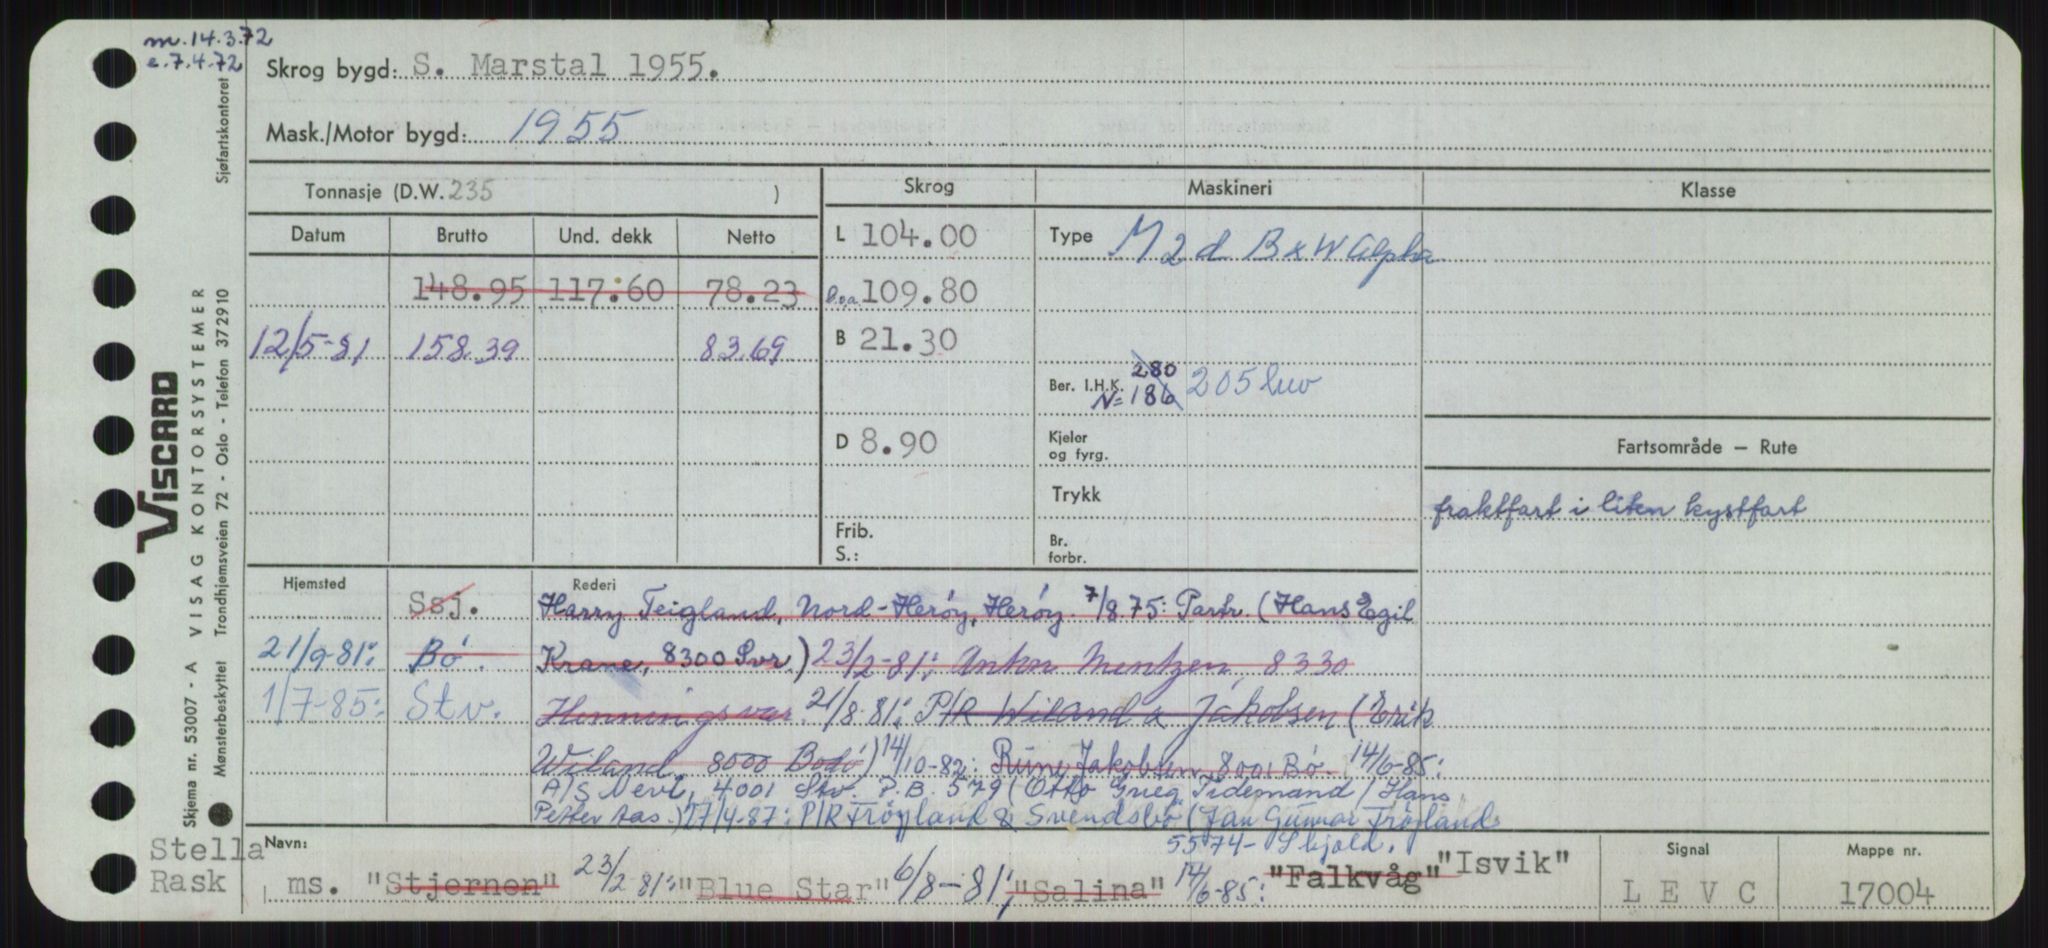 m. 14.3.72
e. 7.4.72
Skrog bygd: S. Marstal 1955.
Mask./Motor bygd: 1955
Tonnasje (D.W. 235 )
Skrog
Maskineri
Klasse
Datum Brutto Und. dekk Netto
148.95 117.60 78.23
12/5-81 158.39 83.69
L 104.00
l.o.a 109.80
B 21.30
D 8.90
Frib.
S.:
Type M 2 d B x W Alpha
Ber. I.H.K. 280
N= 186 205 
Kjeler
og fyrg.
Trykk
Br.
forbr.
Fartsområde — Rute
fraktfart i liten kystfart
Hjemsted
Rederi
Ssj. Harry Teigland, Nord-Herøy, Herøy. 7/8 75: Partr. (Hans Egil
21/9-81: Bö. Krane, 8300 Svr.) 23/2-81: Anton Mentzen, 8330
1/7-85: Stv. Henningsvær. 21/8-81: P/R Wiland & Jakobsen (Erik
Wiland, 8000 Bodö) 14/10-82: Rune Jakobsen, 8001 Bö. 14/6-85:
A/S Nevi, 4001 Stv. P.B. 579 (Otto Grieg Tidemand / Hans
Petter Aas.) 27/4-87: P/R Fröyland & Svendsbö (Jan Gunnar Fröyland
5574- Skjold.
Navn:
Stella
Rask
ms. "Stjernen" 23/2 81: "Blue Star" 6/8-81: "Salina" 14/6-85: "Falkvåg" "Isvik"
Signal
L E V C
Mappe nr.
17004
VISCARD
Skjema nr. 53007 - A VISAG KONTORSYSTEMER
Mønsterbeskyttet Trondhjemsveien 72 - Oslo - Telefon 372910
Sjøfartskontoret